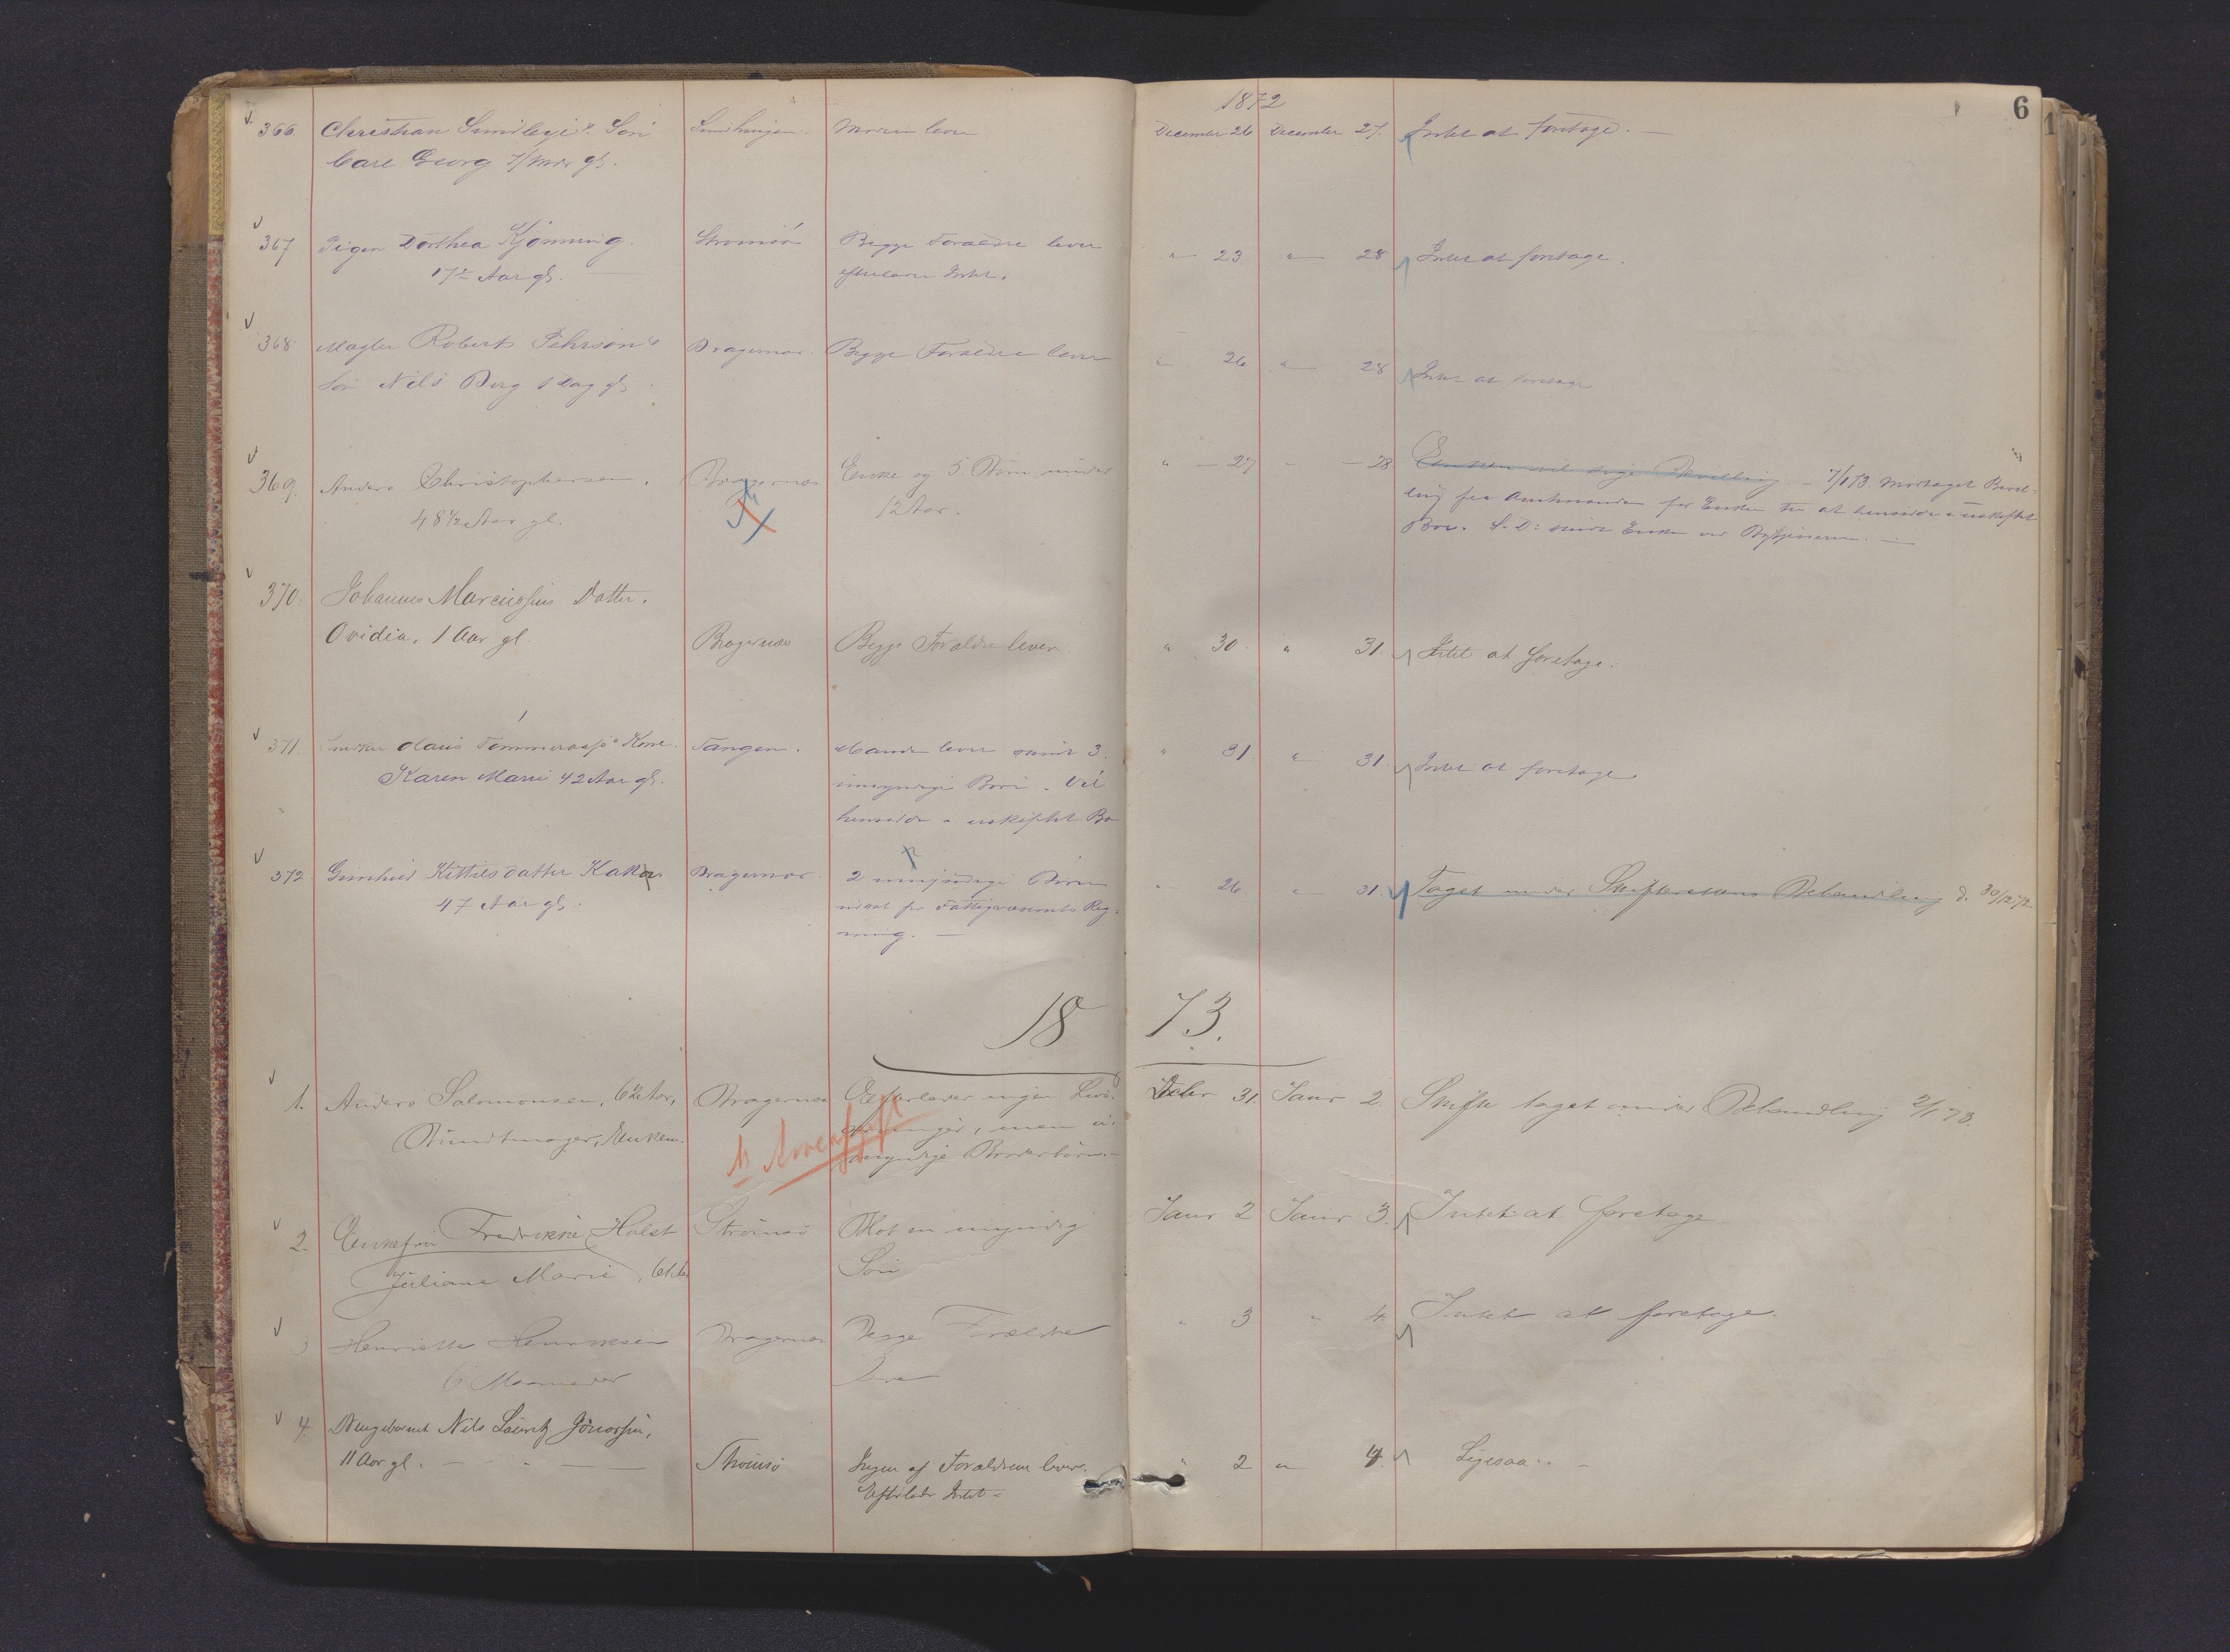 1872
6
366. Christian Sundleyes Søn Moren lever December 26 December 27. Intet at foretage. —
Carl Georg 7/mdr gl.
367 Pigen Dorthea Kjønning. Strømsøe Begge Forældre lever " 23 " 28 Intet at foretage.
17½ Aar gl. — efterlader Intet.
368 Mægler Robert Pehrson's Bragernæs. Begge Forældre lever " 26 " 28 Intet at foretage
Søn Nils Berg 1 Dag gl.
369. Anders Christophersen. Bragernæs Enke og 5 Børn under " — 27 " — 28 Enken vil søge Bevilling — 7/1 73 Modtaget Bevil-
48½ Aar gl. 12 Aar. ling fra Amtmanden for Enken til at hensidde i uskiftet
Bo. S. D:
370. Johannes Marcussens Datter.
Ovidia, 1 Aar gl. Bragernæs Begge Forældre lever " 30. " 31. Intet at foretage.
371. Snedker Olaus Tømmeraas's Kone. Tangen. Manden lever samt 3 " 31 " 31. Intet at foretage
Karen Marie 42 Aar gl. umyndige Børn. Vil
hensidde i uskiftet Bo
372 Gunhild Kittilsdatter Kaka Bragernæs. 2 umyndige Børn " 26 " 31. Taget under Skifterettens Behandling d. 30/12 72
47 Aar gl. udsat for Fattigvæsenets Reg-
ning. —
1873.
1. Anders Salomonsen, 62 Aar, Bragernæs Efterlader ingen Livs- Decbr 31. Janr 2. Skifte taget under Behandling 2/1 73.
Buntmager, Enkem. arvinger, men u-
myndige Broderbørn. —
Arveafgift
2. Enkefru Fredrikke Holst Strömsö Blot en myndig Janr 2 Janr 3. Intet at foretage
Juliane Marie, 61 Aar Søn
3 Henriette Henriksen Bragernæs Begge Forældre " 3 " 4. Intet at foretage.
6 Maaneder lever
4. Drengebarnet Nils Lauritz
11 Aar gl. — Strömsö Ingen af Forældrene lever. " 2 " 4. Ligesaa. —
Efterlader Intet —